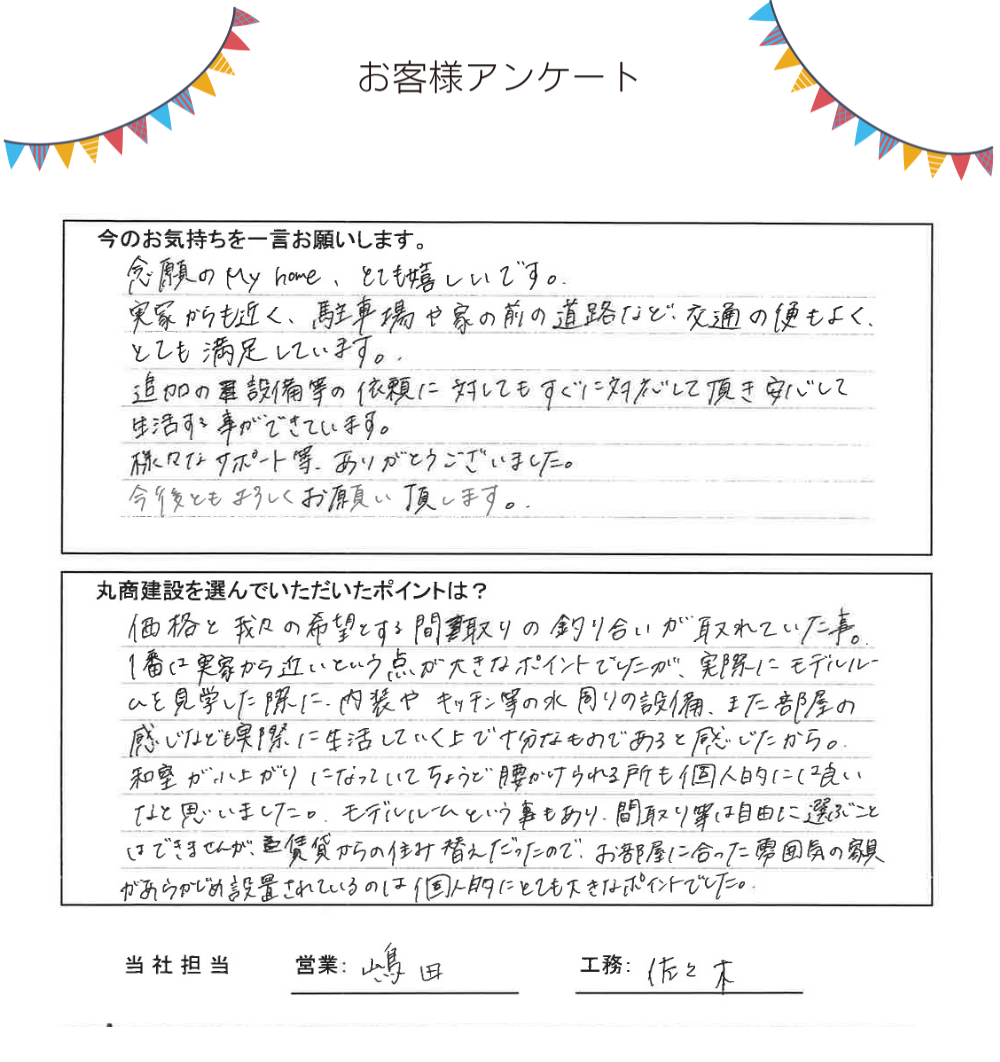 お客様アンケート
今のお気持ちを一言お願いします。
念願の My home、とても嬉しいです。
実家からも近く、駐車場や家の前の道路など、交通の便もよく、
とても満足しています。
追加の設備等の依頼に対してもすぐに対応して頂き安心して
生活する事ができています。
様々なサポート等、ありがとうございました。
今後ともよろしくお願い頂します。
丸商建設を選んでいただいたポイントは？
価格と我々の希望とする間取りの釣り合いが取れていた事。
1番は実家から近いという点が大きなポイントでしたが、実際にモデルルー
ムを見学した際に、内装やキッチン等の水周りの設備、また部屋の
感じなども実際に生活していく上で十分なものであると感じたから。
和室が小上がりになっていてちょうど腰かけられる所も個人的には良い
なと思いました。モデルルームという事もあり、間取り等は自由に選ぶこと
はできませんが、賃貸からの住み替えだったので、お部屋に合った雰囲気の家具
があらかじめ設置されているのは個人的にとても大きなポイントでした。
当社担当 営業: 嶋田 工務: 佐々木